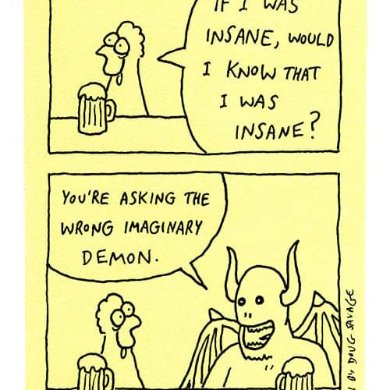 IF I WAS
INSANE, WOULD
I KNOW THAT
I WAS
INSANE?
YOU'RE ASKING THE
WRONG IMAGINARY
DEMON.
BY DOUG SAVAGE